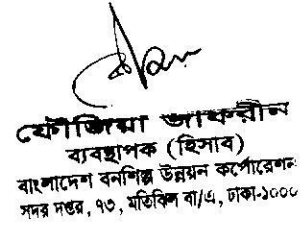 ফৌজিয়া আফরীন
ব্যবস্থাপক (হিসাব)
বাংলাদেশ বনশিল্প উন্নয়ন কর্পোরেশন
সদর দপ্তর, ৭৩, মতিঝিল বা/এ, ঢাকা-১০০০